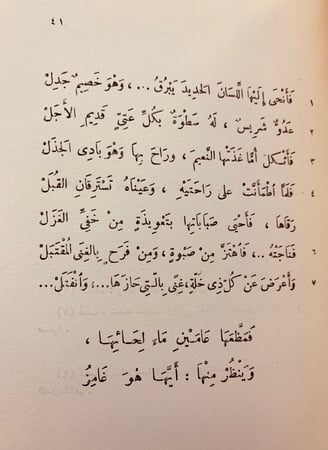 ٤١
فَأَنْحَى إِلَيْهَا اللِّسَانَ الحَدِيدَ يَبْرُقُ...، وَهْوَ خَصِيمٌ جَدِلْ ١
عَدُوٌّ شَرِيسٌ، لَهُ سَطْوَةٌ بِكُلِّ عَتِيٍّ قَدِيمِ الأَجَلْ ٢
فَأَثْكَلَ أُمًّا غَذَتْهَا النَّعِيمَ، وَرَاحَ بِهَا وَهْوَ بَادِى الجَذَلْ ٣
فَلَمَّا اطْمَأَنَّتْ عَلَى رَاحَتَيْهِ، وَعَيْنَاهُ تَسْتَرِقَانِ القُبَلْ ٤
رَقَاهَا، فَأَحْيَى صَبَابَاتِهَا بِتَعْوِيذَةٍ مِنْ خَفِيِّ الغَزَلْ
فَنَاجَتْهُ...، فَاهْتَزَّ مِنْ صَبْوَةٍ، وَمِنْ فَرَحٍ بِالغِنَى المُقْتَبَلْ ٦
وَأَعْرَضَ عَنْ كُلِّ ذِى خَلَّةٍ، غِنًى بِالَّتِى حَازَهَا...، وَانْفَتَلْ... ٧
فَمَظَّعَهَا عَامَيْنِ مَاءَ لِحَائِهَا،
وَيَنْظُرُ مِنْهَا: أَيَّهَا هُوَ غَامِزُ